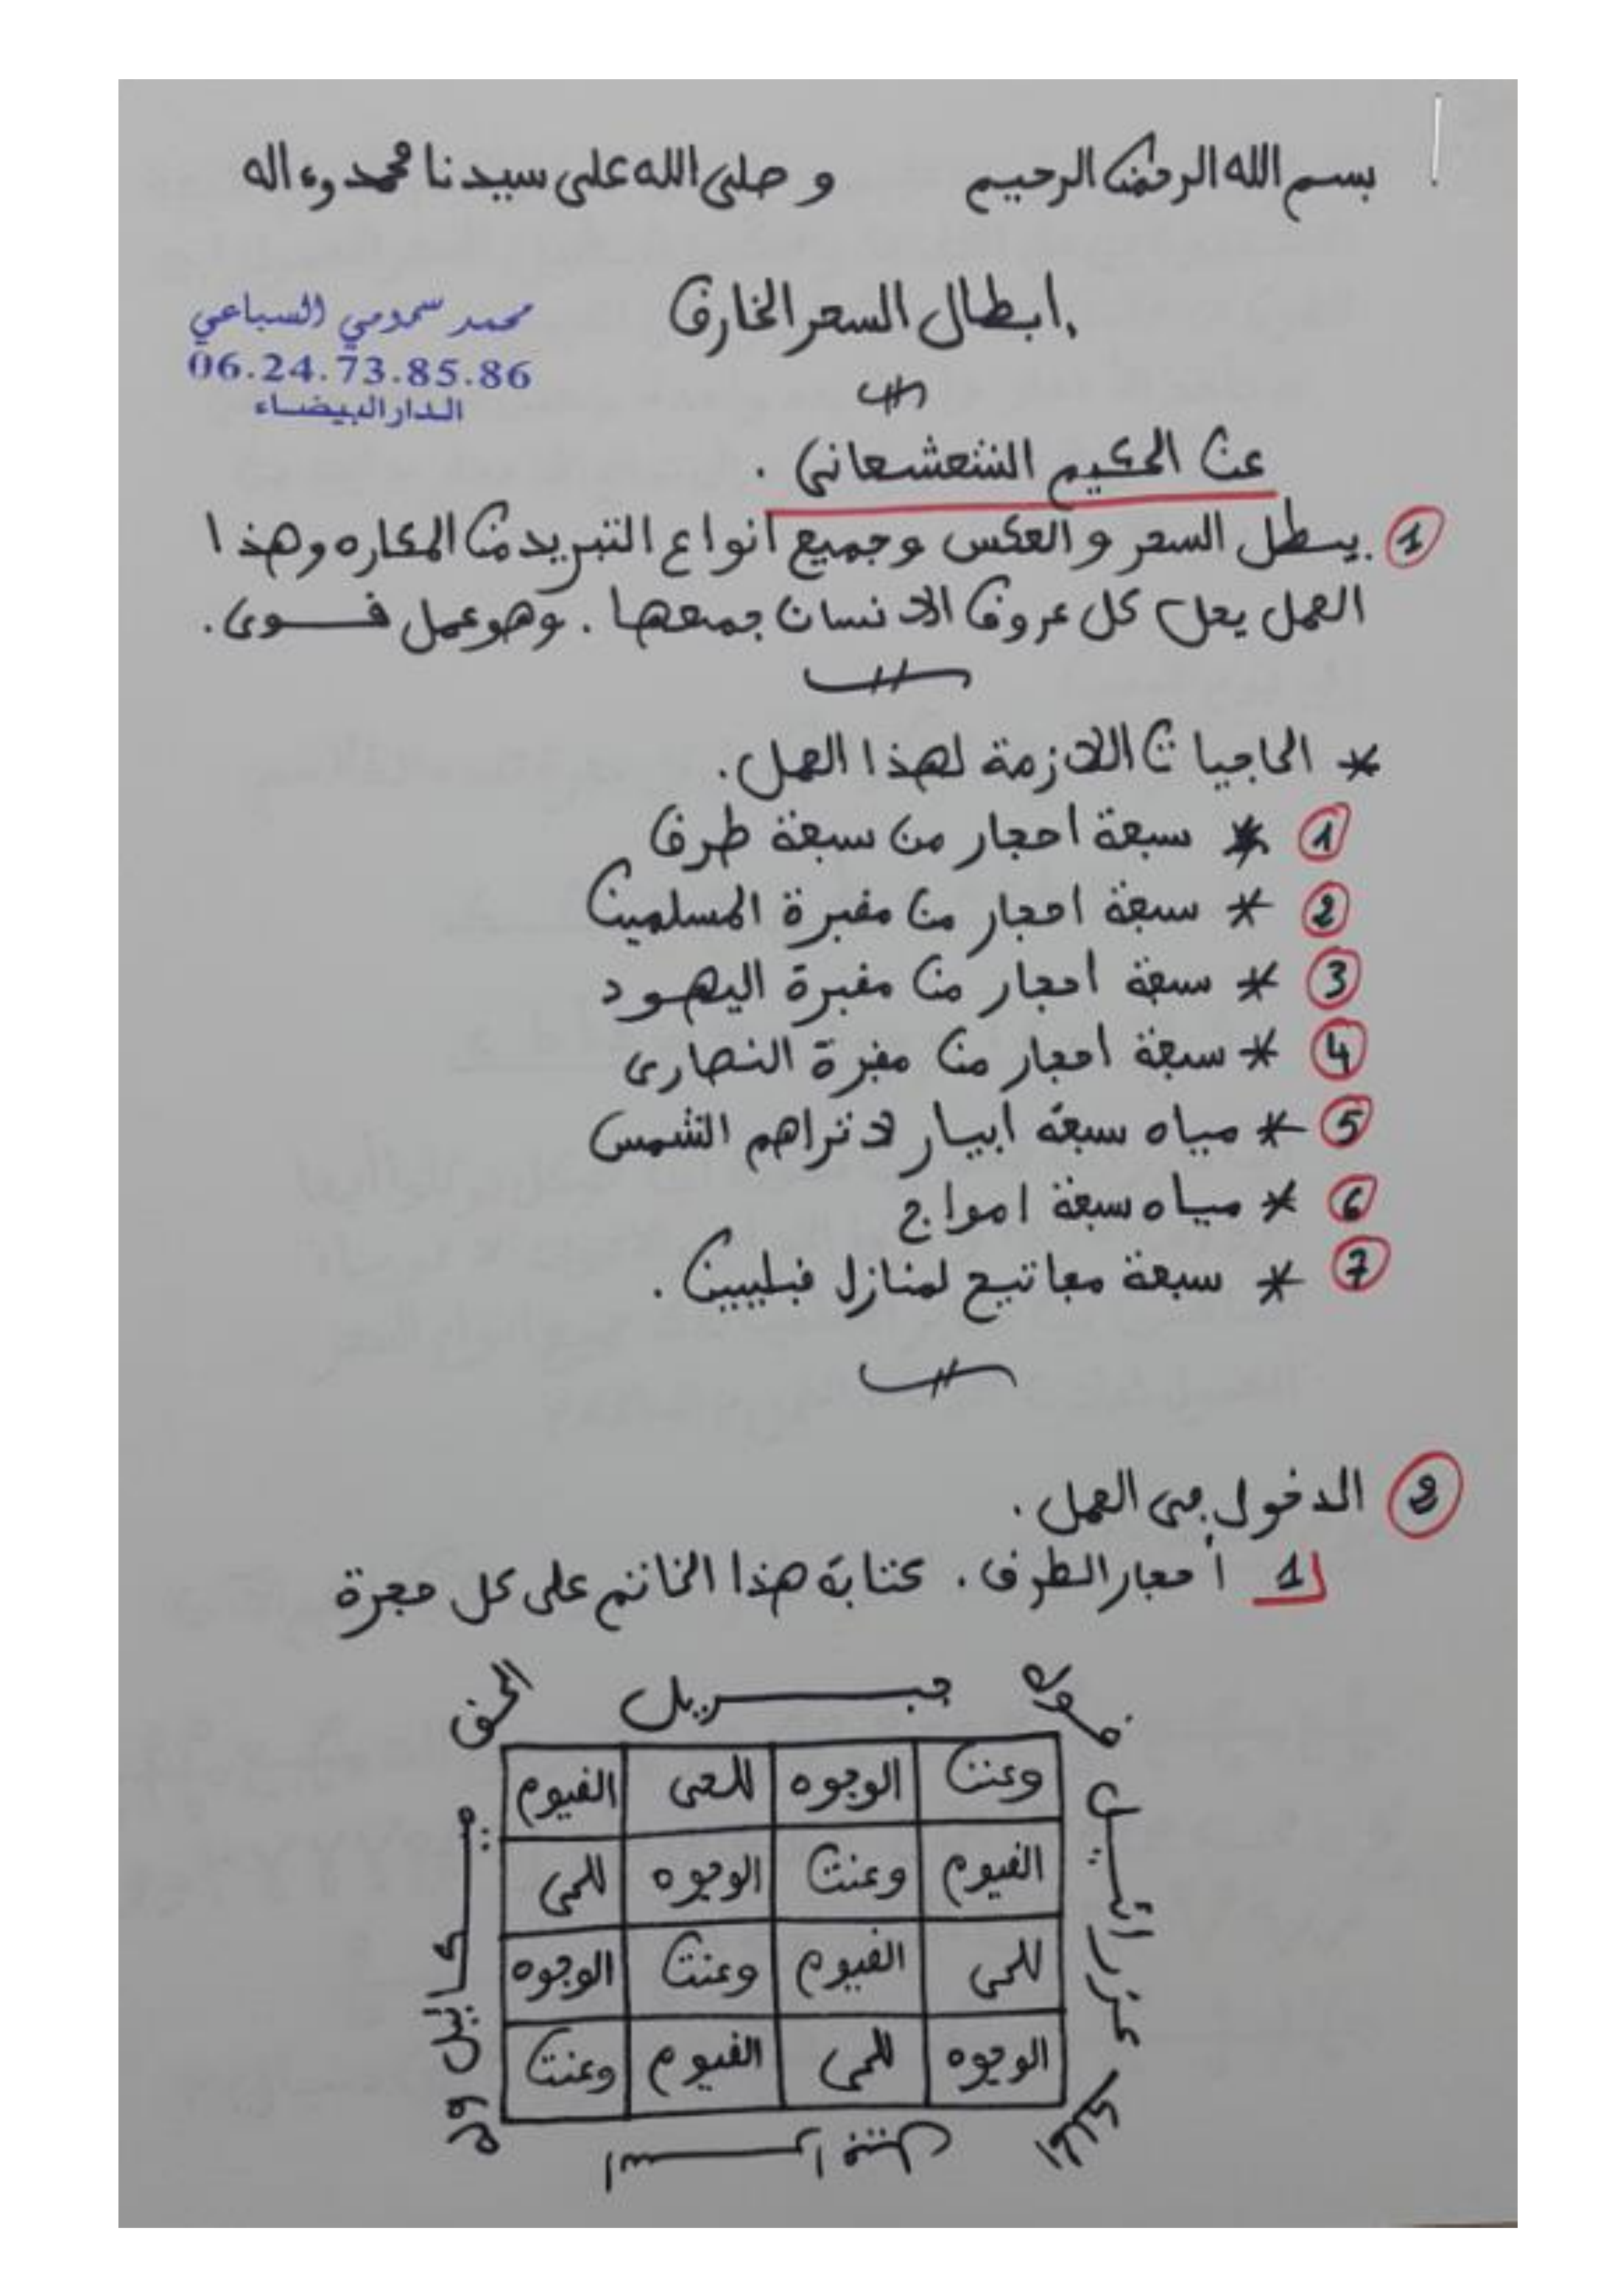 بسم الله الرحمن الرحيم وصلى الله على سيدنا محمد وءاله
ابطال السحر الخارق
محمد سمومي السباعي
06.24.73.85.86
الدار البيضاء
عن الحكيم الشعشعاني .
1 يبطل السحر والعكس وجميع انواع التبريد من المكاره وهذا
العمل يحل كل عروق الانسان جمعها . وهو عمل قوى .
* الحاجيات اللازمة لهذا العمل .
1 * سبعة احجار من سبعة طرق
2 * سبعة احجار من مقبرة المسلمين
3 * سبعة احجار من مقبرة اليهود
4 * سبعة احجار من مقبرة النصارى
5 * مياه سبعة ابيار لا تراهم الشمس
6 * مياه سبعة امواج
7 * سبعة مفاتيح لمنازل قبليين .
2 الدخول في العمل .
1 أحجار الطرق . كتابة هذا الخاتم على كل حجرة
قوله جبريل الحق
وعنت الوجوه للحى القيوم
القيوم وعنت الوجوه للحى
للحى القيوم وعنت الوجوه
الوجوه للحى القيوم وعنت
عزرائيل
ميكائيل
الملك
وله